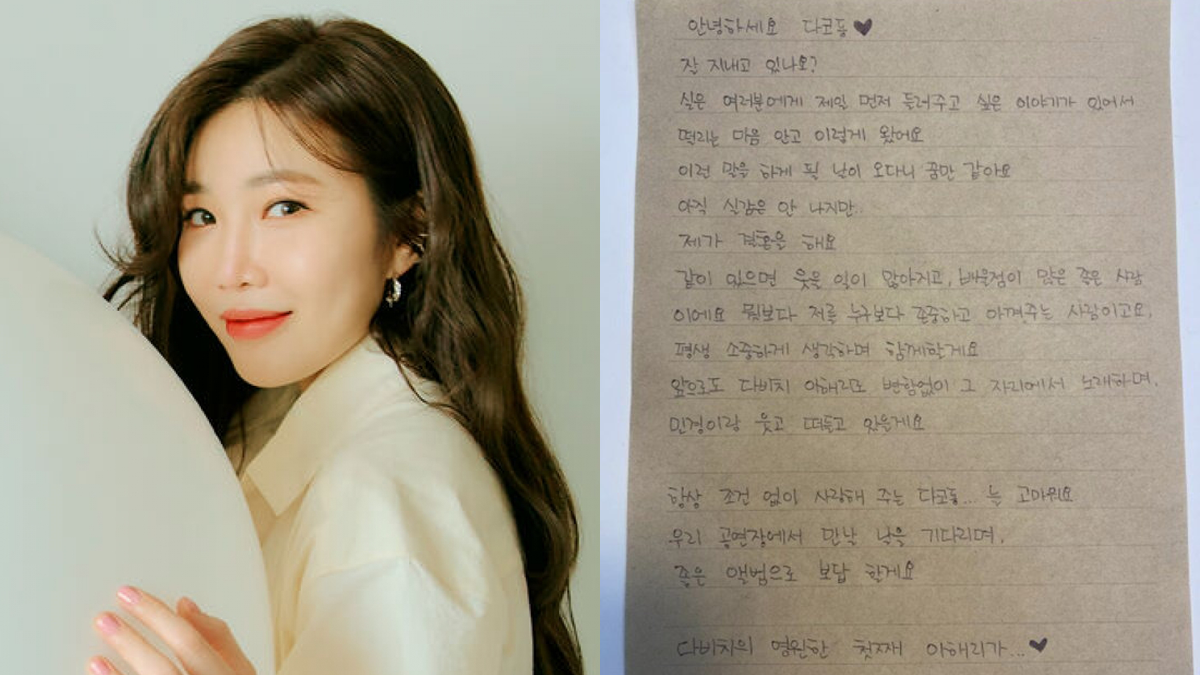 안녕하세요 다코들♥
잘 지내고 있나요?
실은 여러분에게 제일 먼저 들려주고 싶은 이야기가 있어서
떨리는 마음 안고 이렇게 왔어요
이런 말을 하게 될 날이 오다니 꿈만 같아요
아직 실감은 안 나지만..
제가 결혼을 해요
같이 있으면 웃을 일이 많아지고, 배울점이 많은 좋은 사람
이에요 뭣보다 저를 누구보다 존중하고 아껴주는 사람이고요,
평생 소중하게 생각하며 함께할게요
앞으로도 다비치 이해리도 변함없이 그 자리에서 노래하며,
민경이랑 웃고 떠들고 있을게요
항상 조건 없이 사랑해 주는 다코들... 늘 고마워요
우리 공연장에서 만날 날을 기다리며,
좋은 앨범으로 보답 할게요
다비치의 영원한 첫째 이해리가...♥